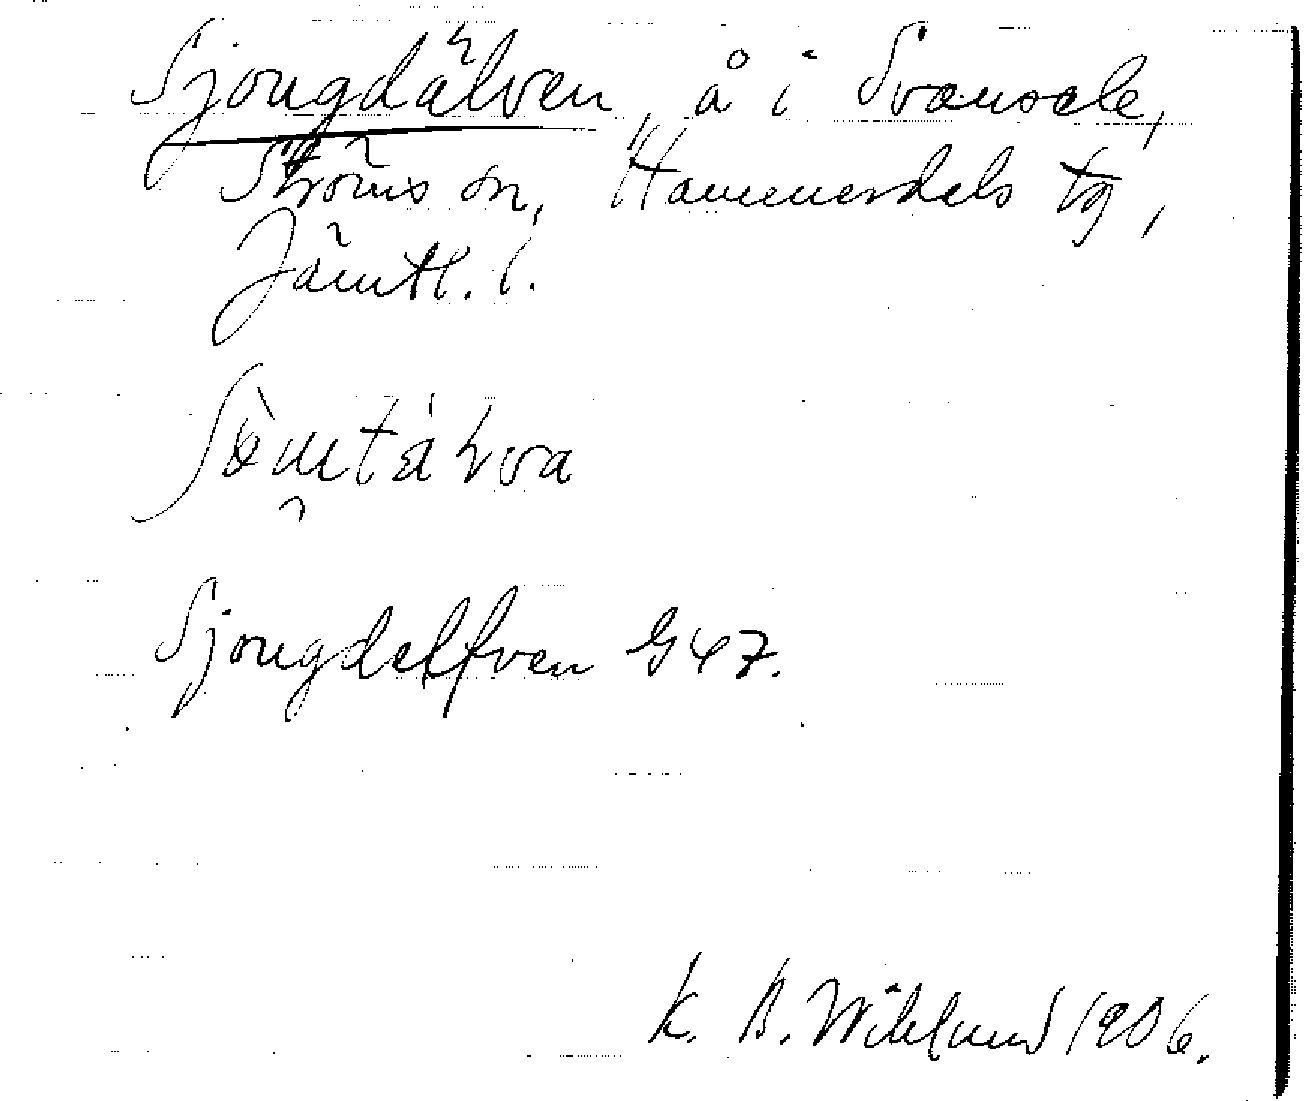 Sjougdälven, å i Svansele,
Ströms sn, Hammerdals tg,
Jämtl. l.
Sjougdelfven G 47.
K. B. Wiklund 1906.